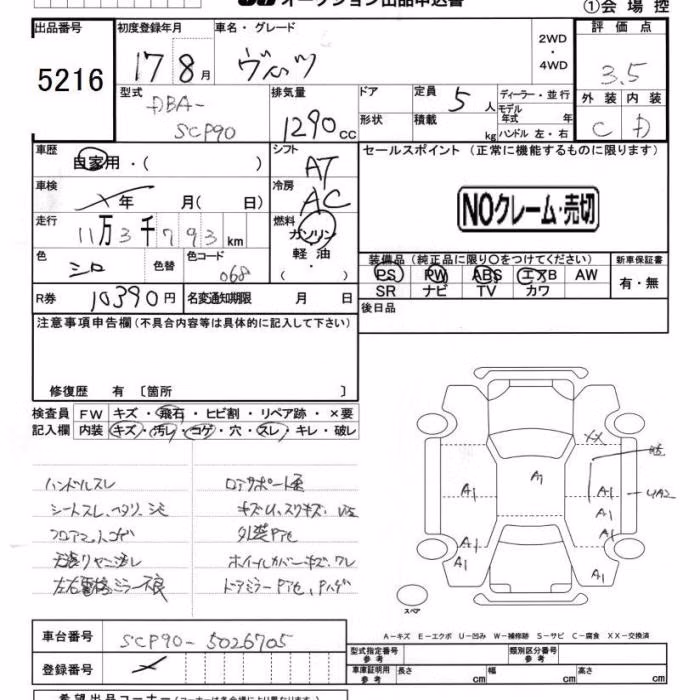 オークション出品申込書
①会場控
出品番号
5216
初度登録年月
17 8月
車名・グレード
ヴィッツ
2WD
・
4WD
評価点
3.5
外装 内装
C D
型式
DBA-
SCP90
排気量
1290cc
ドア
定員 5人
ディーラー・並行
モデル
年式 年
形状
積載 kg
ハンドル 左・右
車歴
自家用・( )
シフト
AT
車検
年 月( 日)
冷房
AC
走行
11万3千793km
燃料
ガソリン
軽油
( ・ )
色
シロ
色替
色コード
068
R券 10390円
名変通知期限 月 日
セールスポイント (正常に機能するものに限ります)
NOクレーム・売切
装備品(純正品に限り○をつけてください)
PS PW ABS エアB AW
SR ナビ TV カワ
新車保証書
有・無
後日品
注意事項申告欄(不具合内容等は具体的に記入して下さい)
修復歴 有 〔箇所 〕
検査員 FW キズ・飛石・ヒビ割・リペア跡・×要
記入欄 内装 キズ・汚レ・コゲ・穴・スレ・キレ・破レ
ハンドルスレ
シートスレ、ヘタリ、シミ
フロアマットコゲ
左右電格ミラー不良
ロアサポート歪
外装PAセ
ホイールカバーキズ、ワレ
ドアミラーPアセ、Pハゲ
XX
A1
A1
A1
A1
A1
A1
A1
スペア
A-キズ E-エクボ U-凹み W-補修跡 S-サビ C-腐食 XX-交換済
車台番号 SCP90-5026705
登録番号
型式指定番号
参考
類別区分番号
参考
車庫証明用
参考
長さ cm 幅 cm 高さ cm
希望出品コーナー